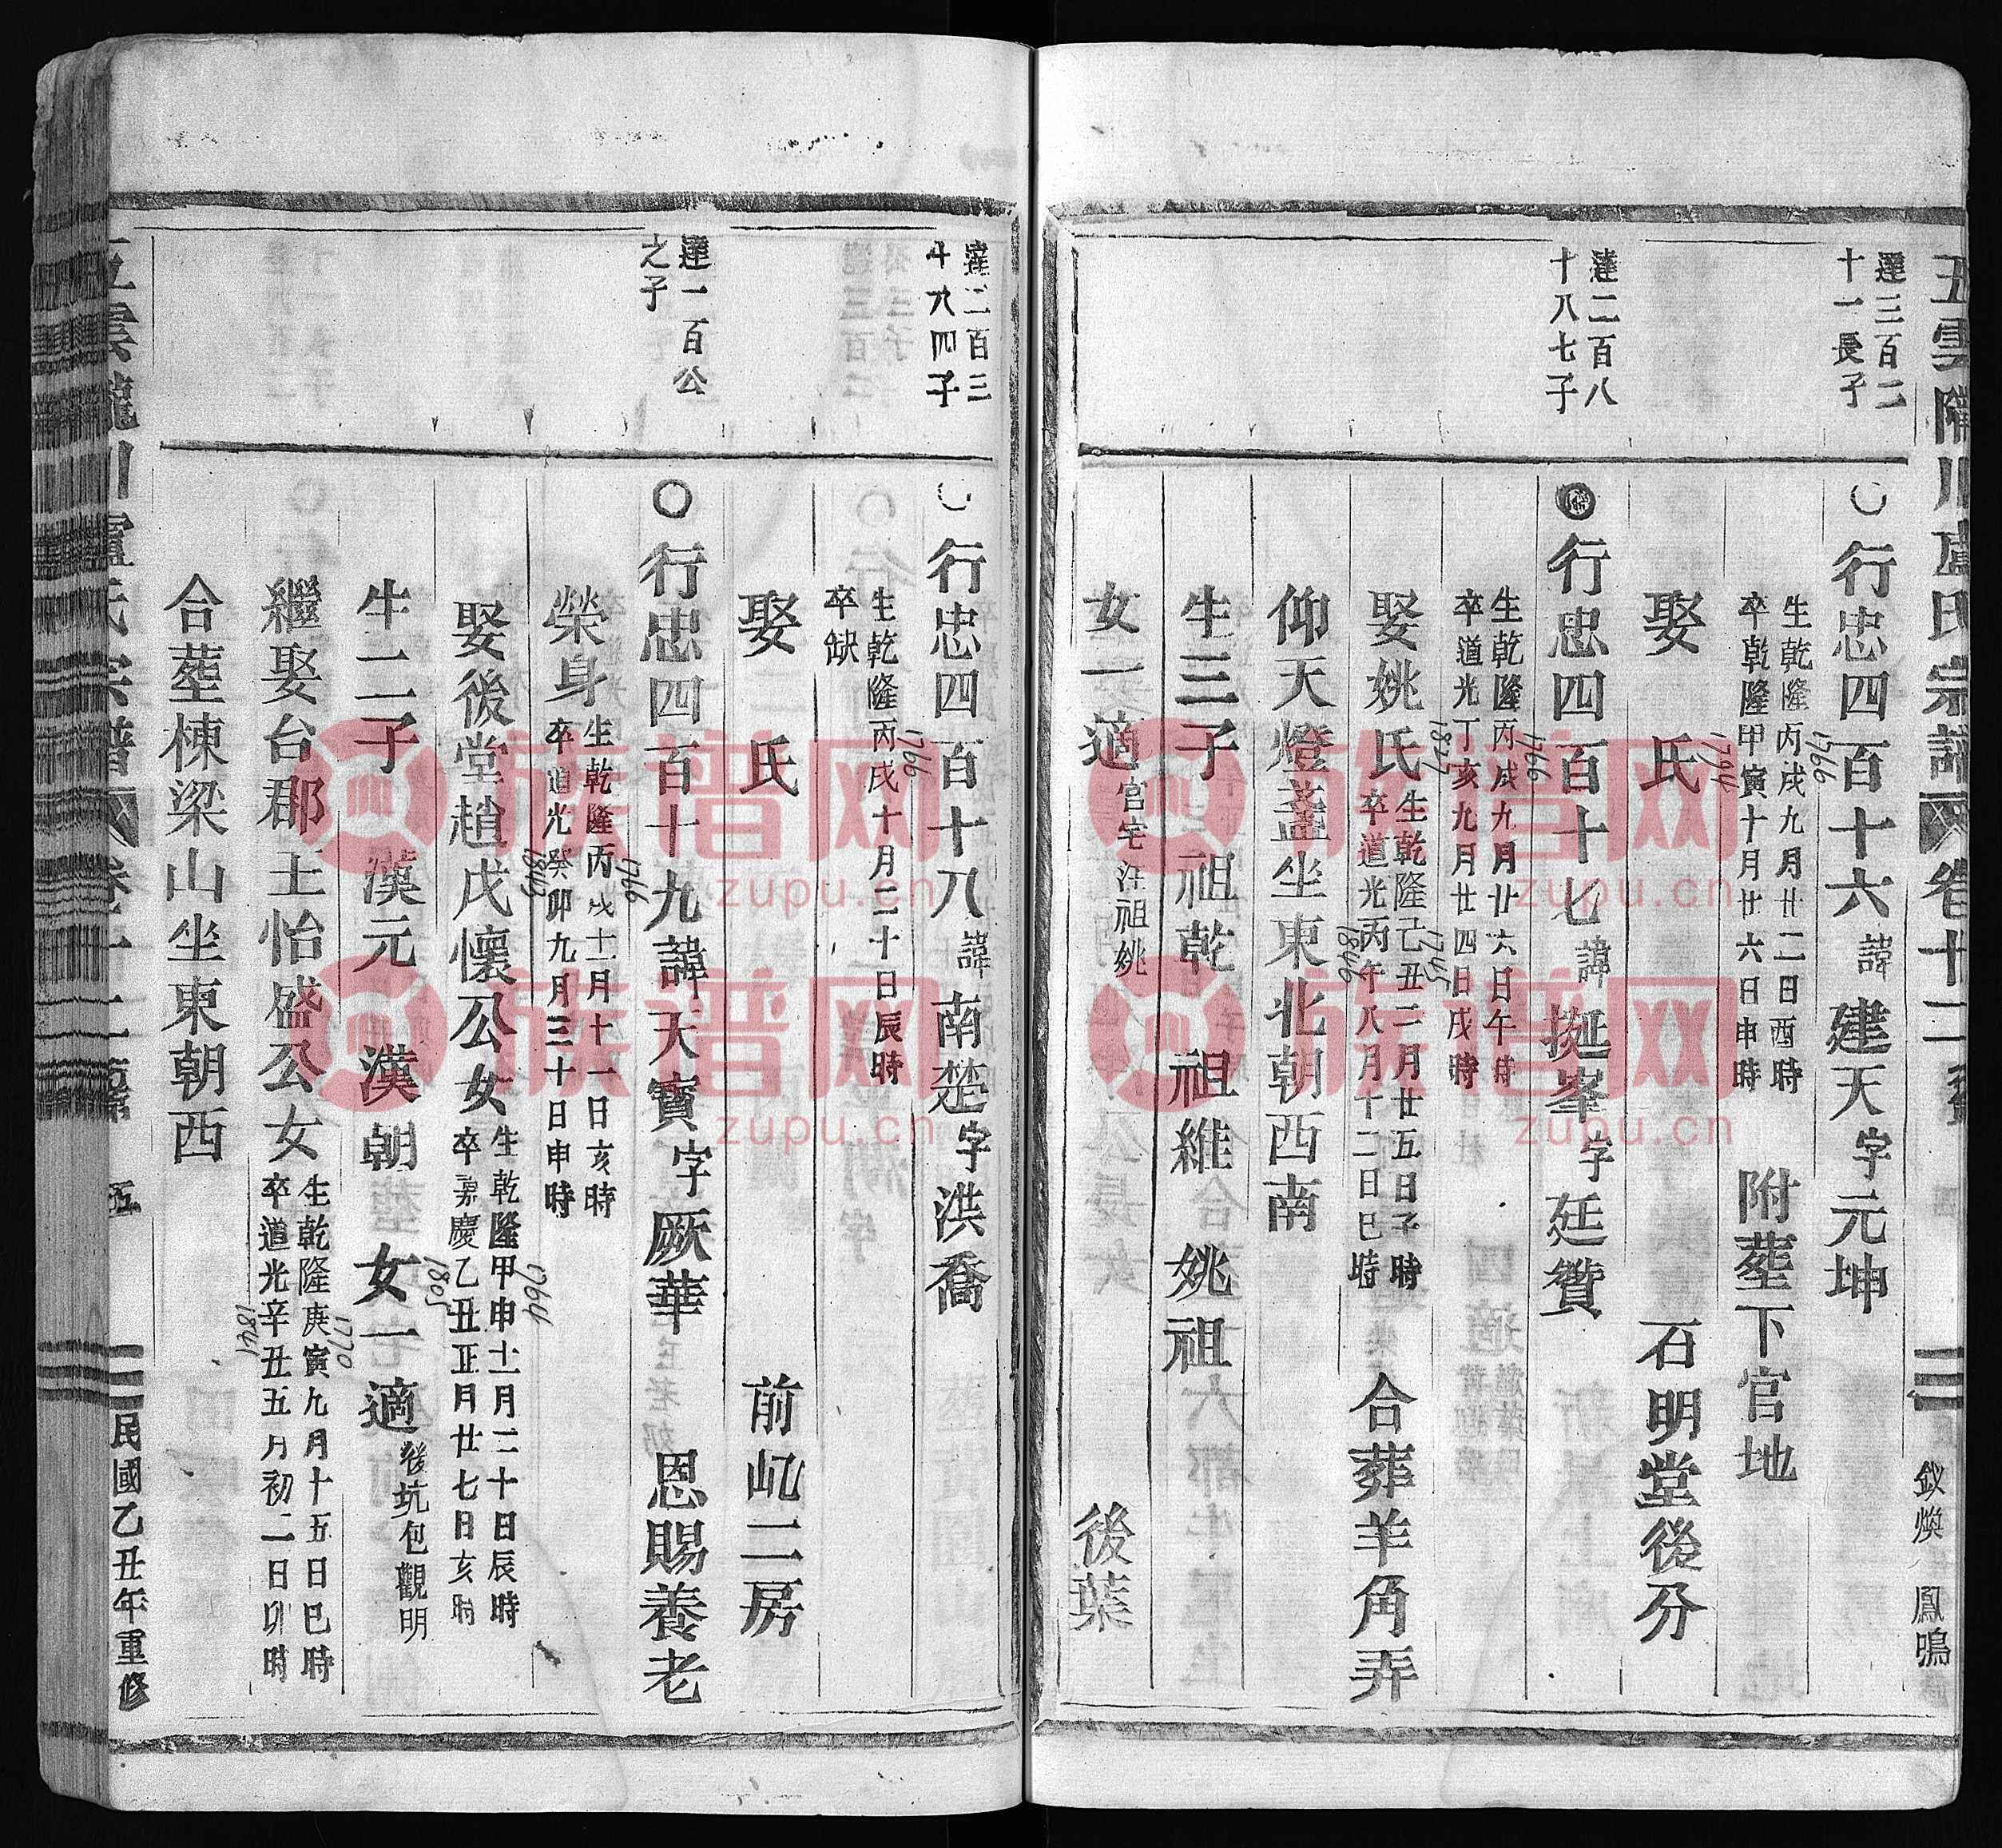 五雲隴川盧氏宗譜 卷十二
釵煥 鳳鳴
達三百二
十一長子
〇行忠四百十六諱建天字元坤
生乾隆丙戌九月廿二日酉時
1766
卒乾隆甲寅十月廿六日申時
1794
附塟下官地
娶 氏 石明堂後分
達二百八
十八七子
行忠四百十七諱挻峯字廷贊
生乾隆丙戌九月廿六日午時
1766
卒道光丁亥九月廿四日戌時
1827
娶姚氏
生乾隆己丑二月廿五日子時
1745
卒道光丙午八月十二日巳時
1846
合葬羊角弄
仰天燈盞坐東北朝西南
生三子 祖乾 祖維 姚祖
女一適官宅汪祖姚 後葉
達二百三
十八四子
〇行忠四百十八諱南楚字洪喬
生乾隆丙戌十月二十日辰時
1766
卒缺
娶 氏 前屺二房
達一百公
之子
〇行忠四百十九諱天寳字厥華 恩賜養老
榮身
生乾隆丙戌十一月十一日亥時
1766
卒道光癸卯九月三十日申時
1843
娶後堂趙戊懷公女
生乾隆甲申十一月二十日辰時
1764
卒嘉慶乙丑正月廿七日亥時
1805
生二子 漢元 漢朝 女一適後坑包觀明
繼娶台郡王怡盛公女
生乾隆庚寅九月十五日巳時
1770
卒道光辛丑五月初二日卯時
1841
合塟棟梁山坐東朝西
五雲隴川盧氏宗譜 卷十二
五
民國乙丑年重修
族谱网
zupu.cn
族谱网
zupu.cn
族谱网
zupu.cn
族谱网
zupu.cn